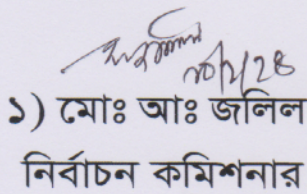 ১) মোঃ আঃ জলিল
নির্বাচন কমিশনার